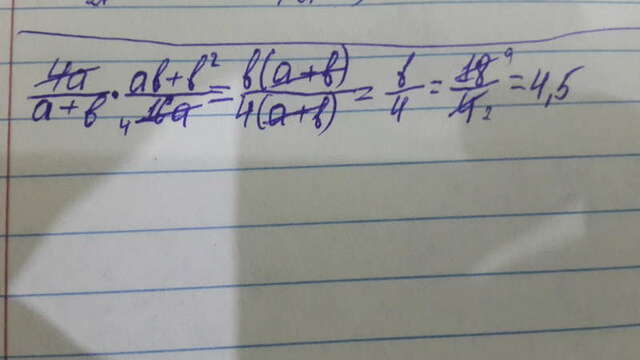 4a/a+b · ab+b²/16a = b(a+b)/4(a+b) = b/4 = 18/4 = 4,5